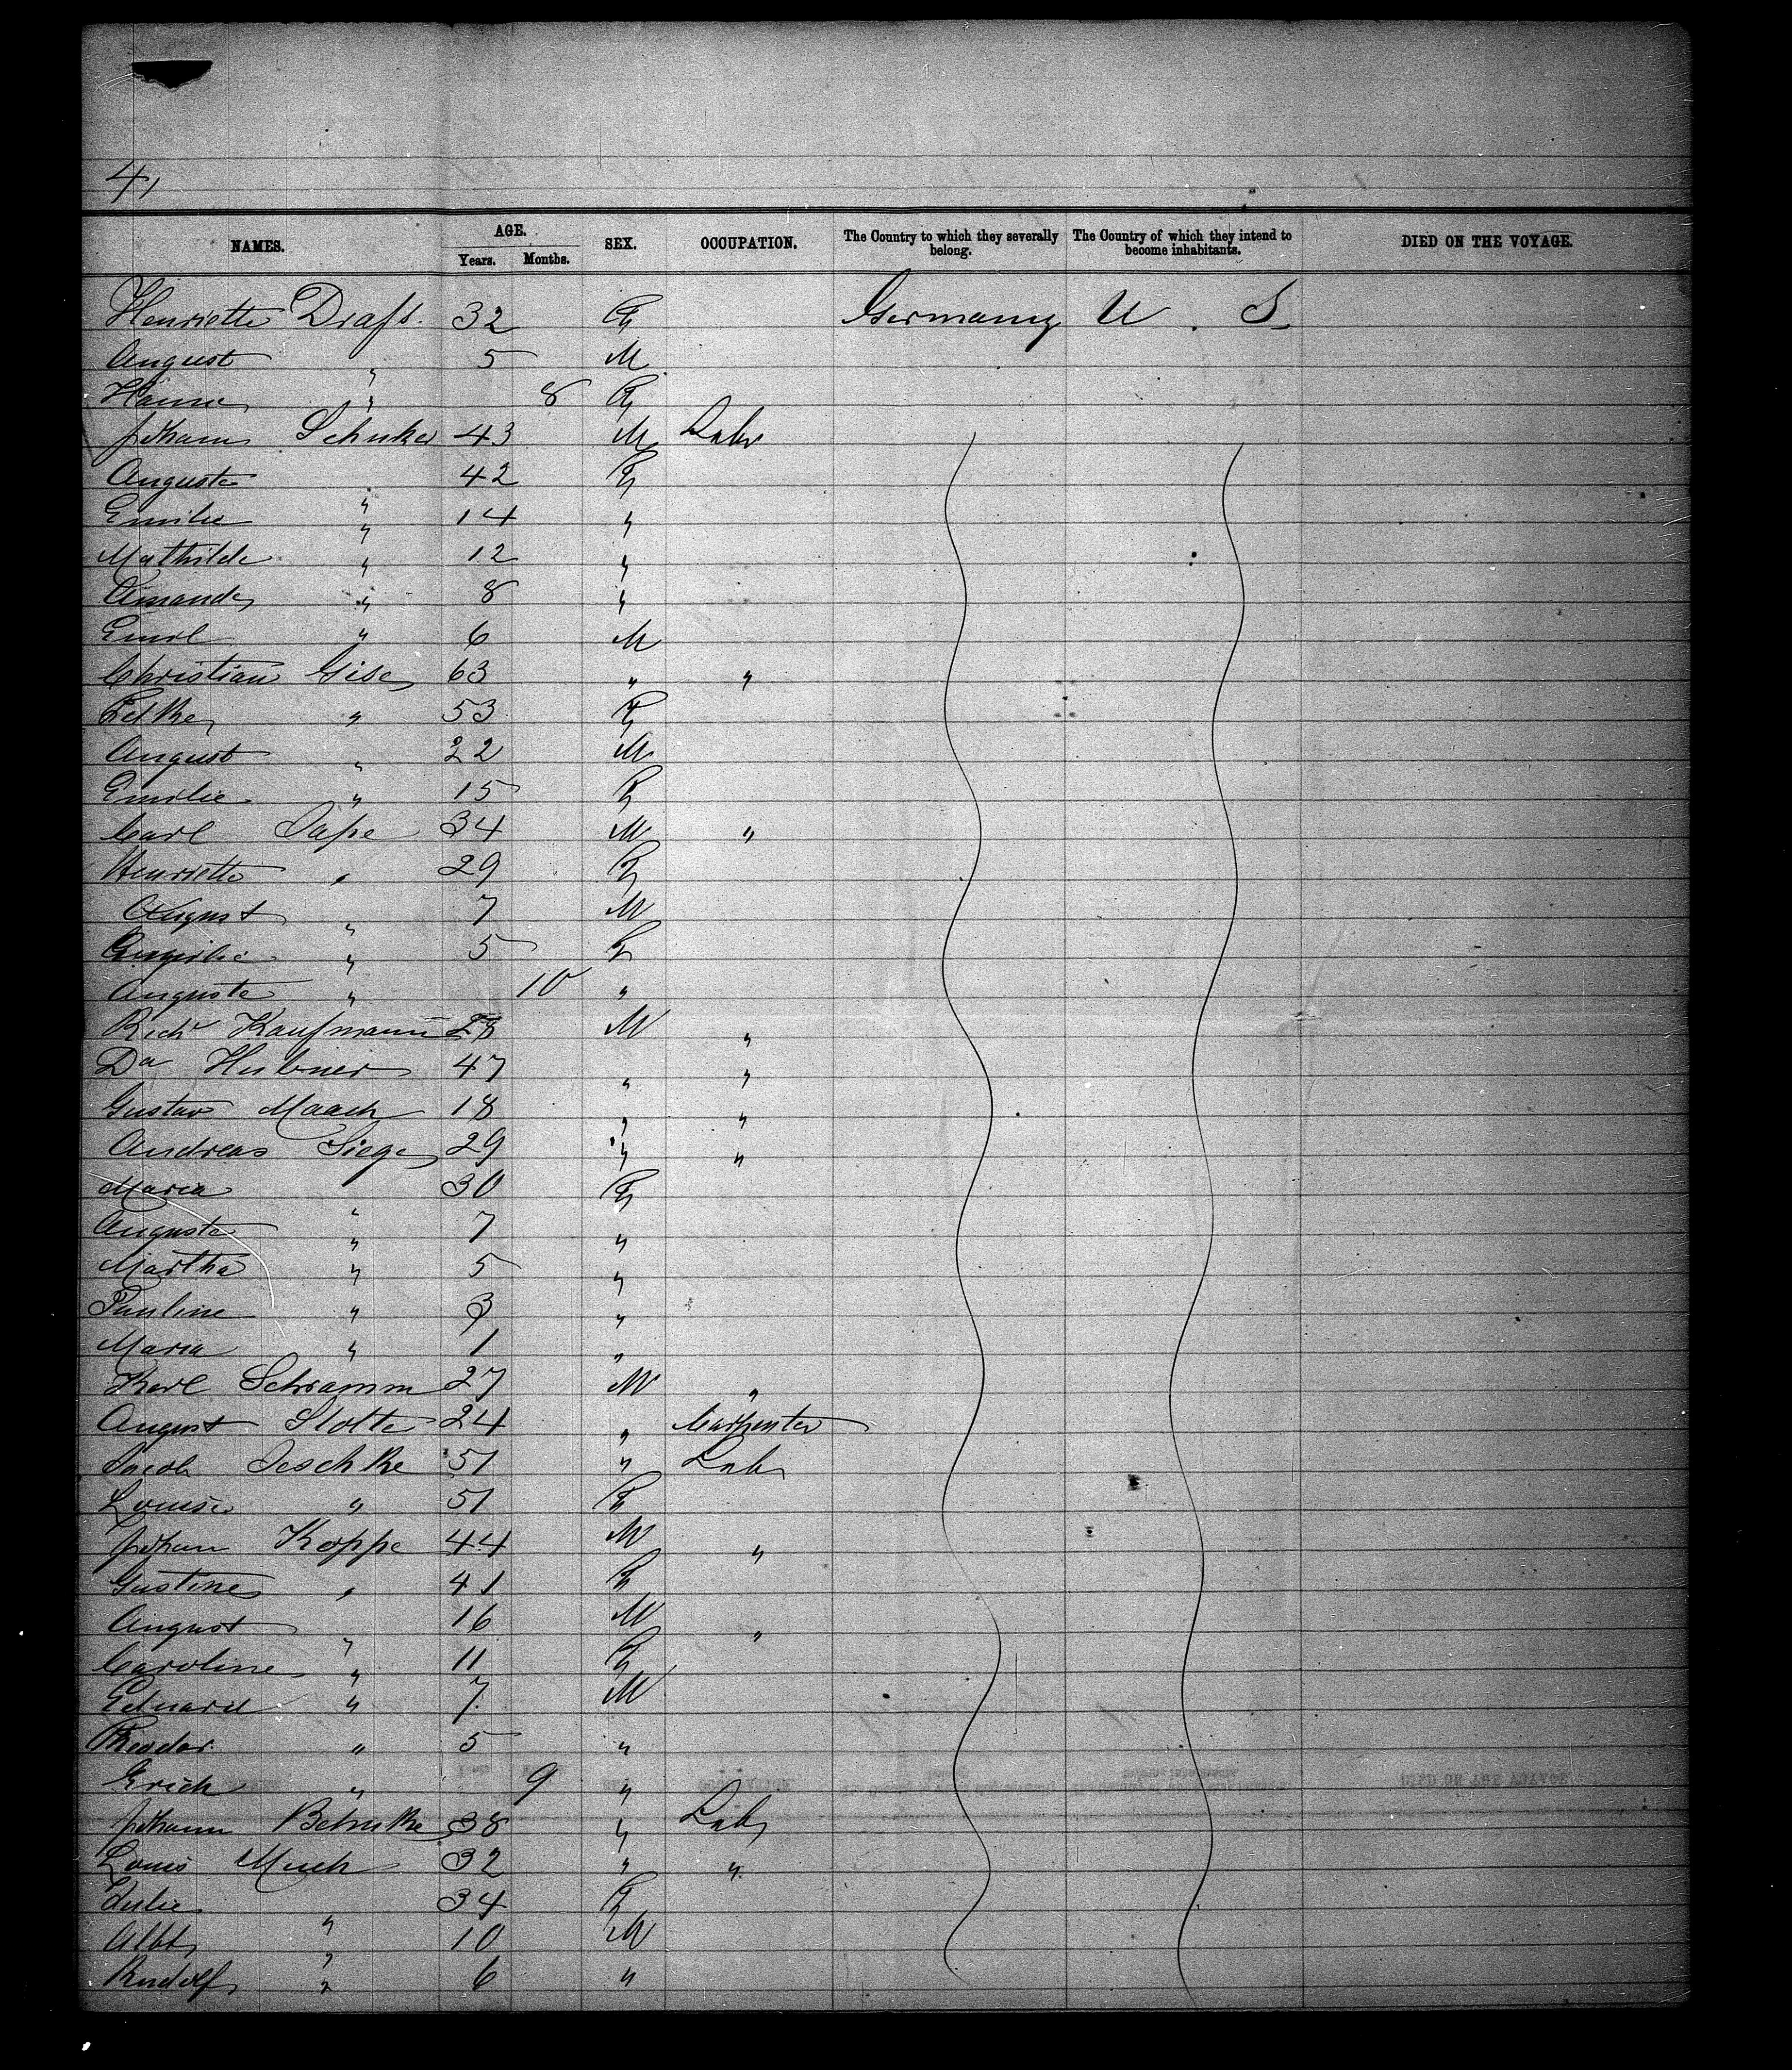 4,
NAMES. AGE. Years. Months. SEX. OCCUPATION. The Country to which they severally belong. The Country of which they intend to become inhabitants. DIED ON THE VOYAGE.
Henriette 32 F Germany U. S.
August " 5 M
" 8 F
Johann 43 M Labr
Auguste " 42 F
Emilie " 14 "
Mathilde " 12 "
Amanda " 8 "
Emil " 6 M
Christian Gise 63 " "
" 53 F
August " 22 M
Emilie " 15 F
Carl 34 M "
Henriette " 29 F
August " 7 M
Emilie " 5 F
Auguste " 10 "
Richd Kaufmann 28 M "
Hübner 47 " "
Gustav Maack 18 " "
Andreas Siege 29 " "
Maria " 30 F
Auguste " 7 "
Martha " 5 "
Pauline " 3 "
Maria " 1 "
Karl Schramm 27 M "
August Stolte 24 " Carpenter
Jacob Jeschke 51 " Labr
Louise " 51 F
Johann Koppe 44 M "
Gustine " 41 F
August " 16 M "
Caroline " 11 F
Eduard " 7 M
Theodor " 5 "
Erich " 9 "
Johann 38 " Labr
Louis Much 32 " "
Julie " 34 F
Albt " 10 M
Rudolf " 6 "